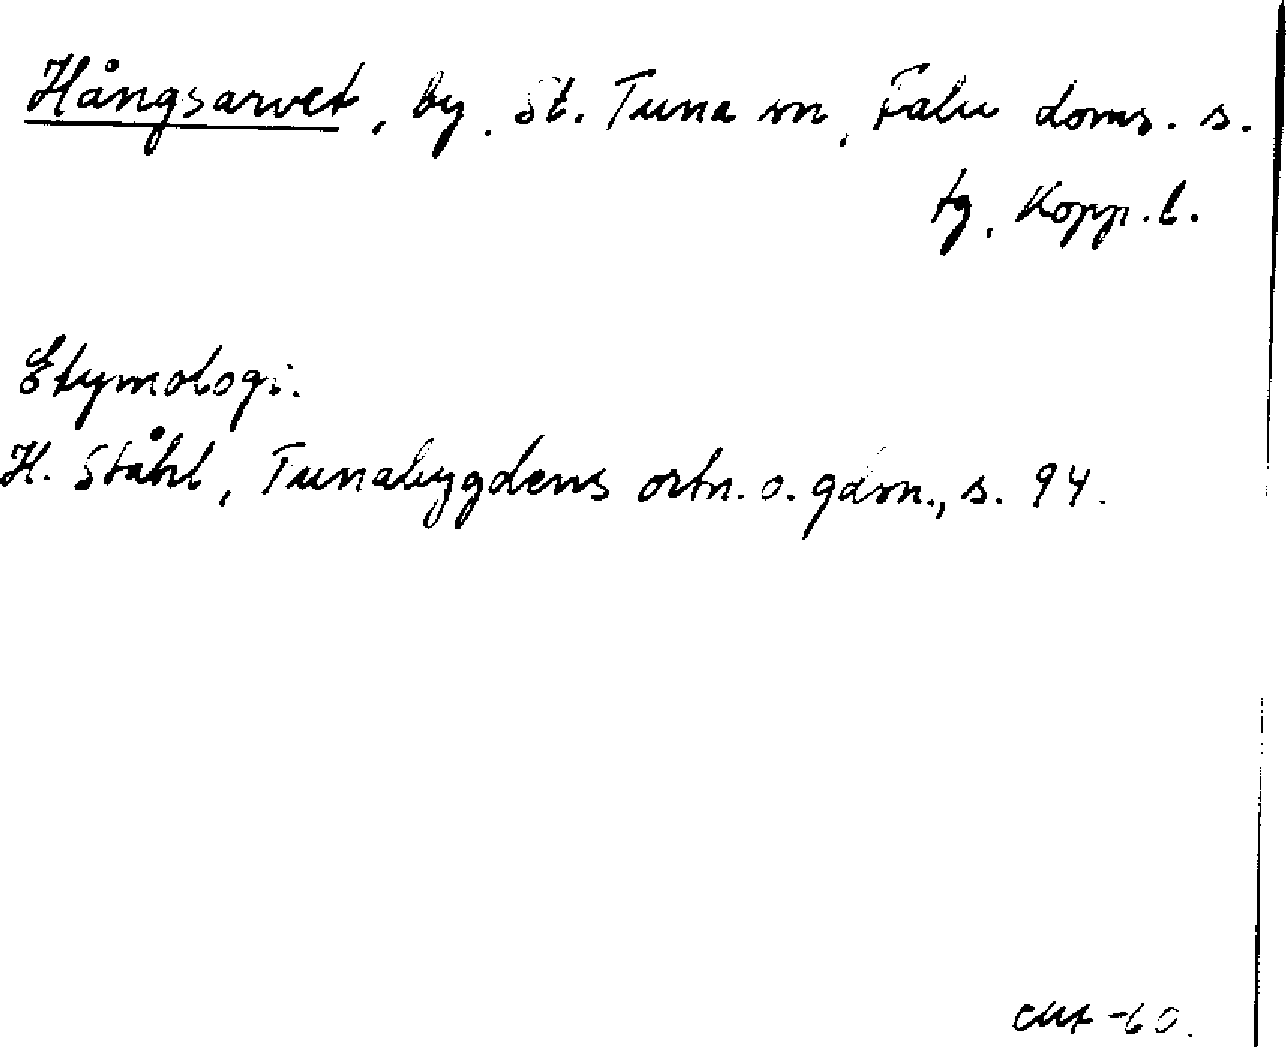 Hångsarvet, by, St. Tuna sn, Falu doms. s.
tg, Kopp. l.
Etymologi.
H. Ståhl, Tunabygdens ortn. o. gårdn., s. 94.
-60.